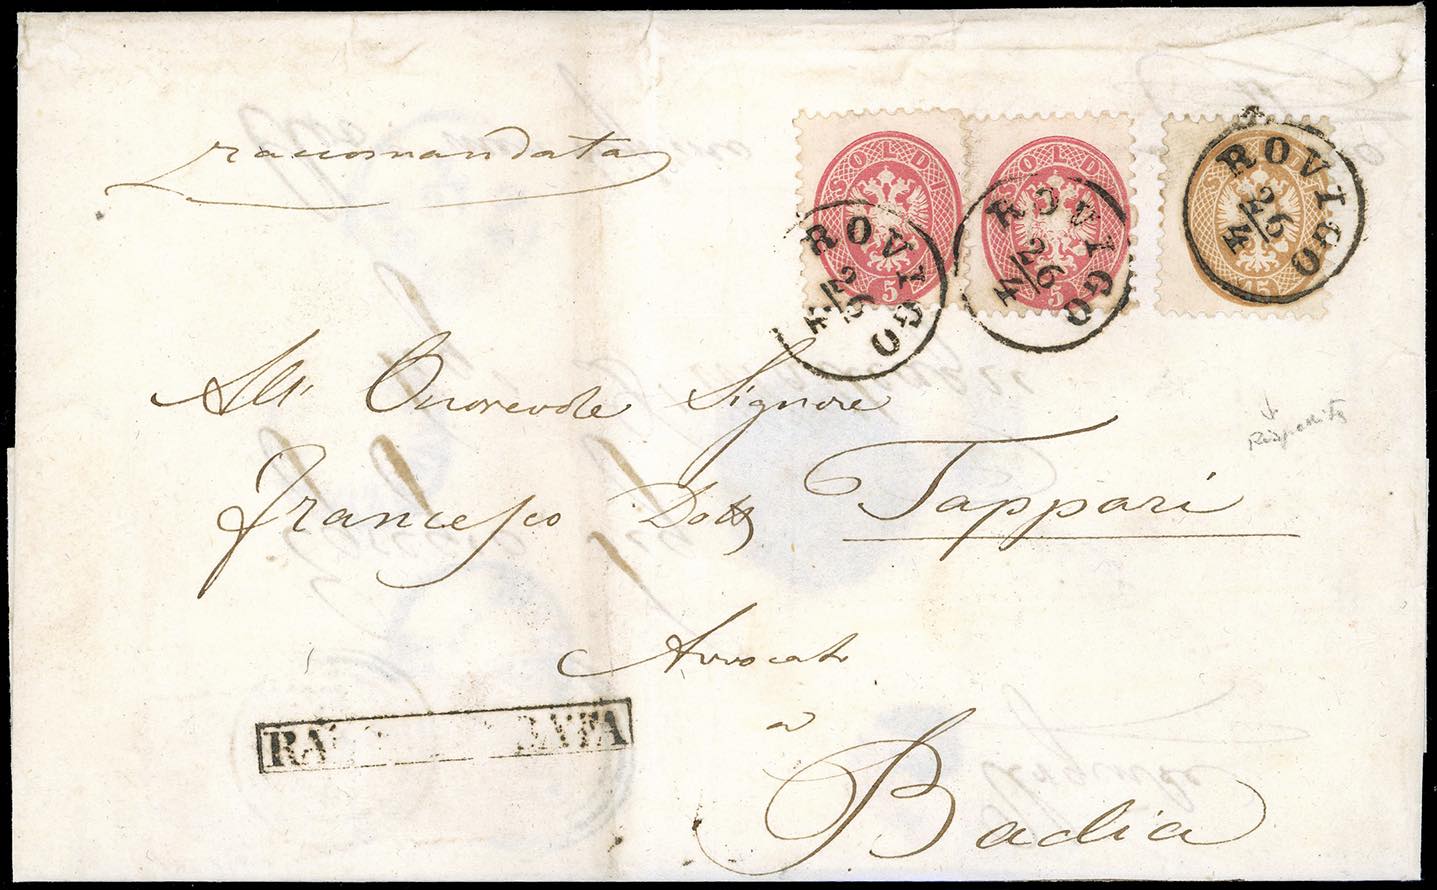 raccomandata
SOLDI 5
SOLDI 5
15
ROVIGO 26/4
ROVIGO 26/4
ROVIGO 26/4
All' Onorevole Signore
Francesco Dott Tappari
Avvocato
a
Badia